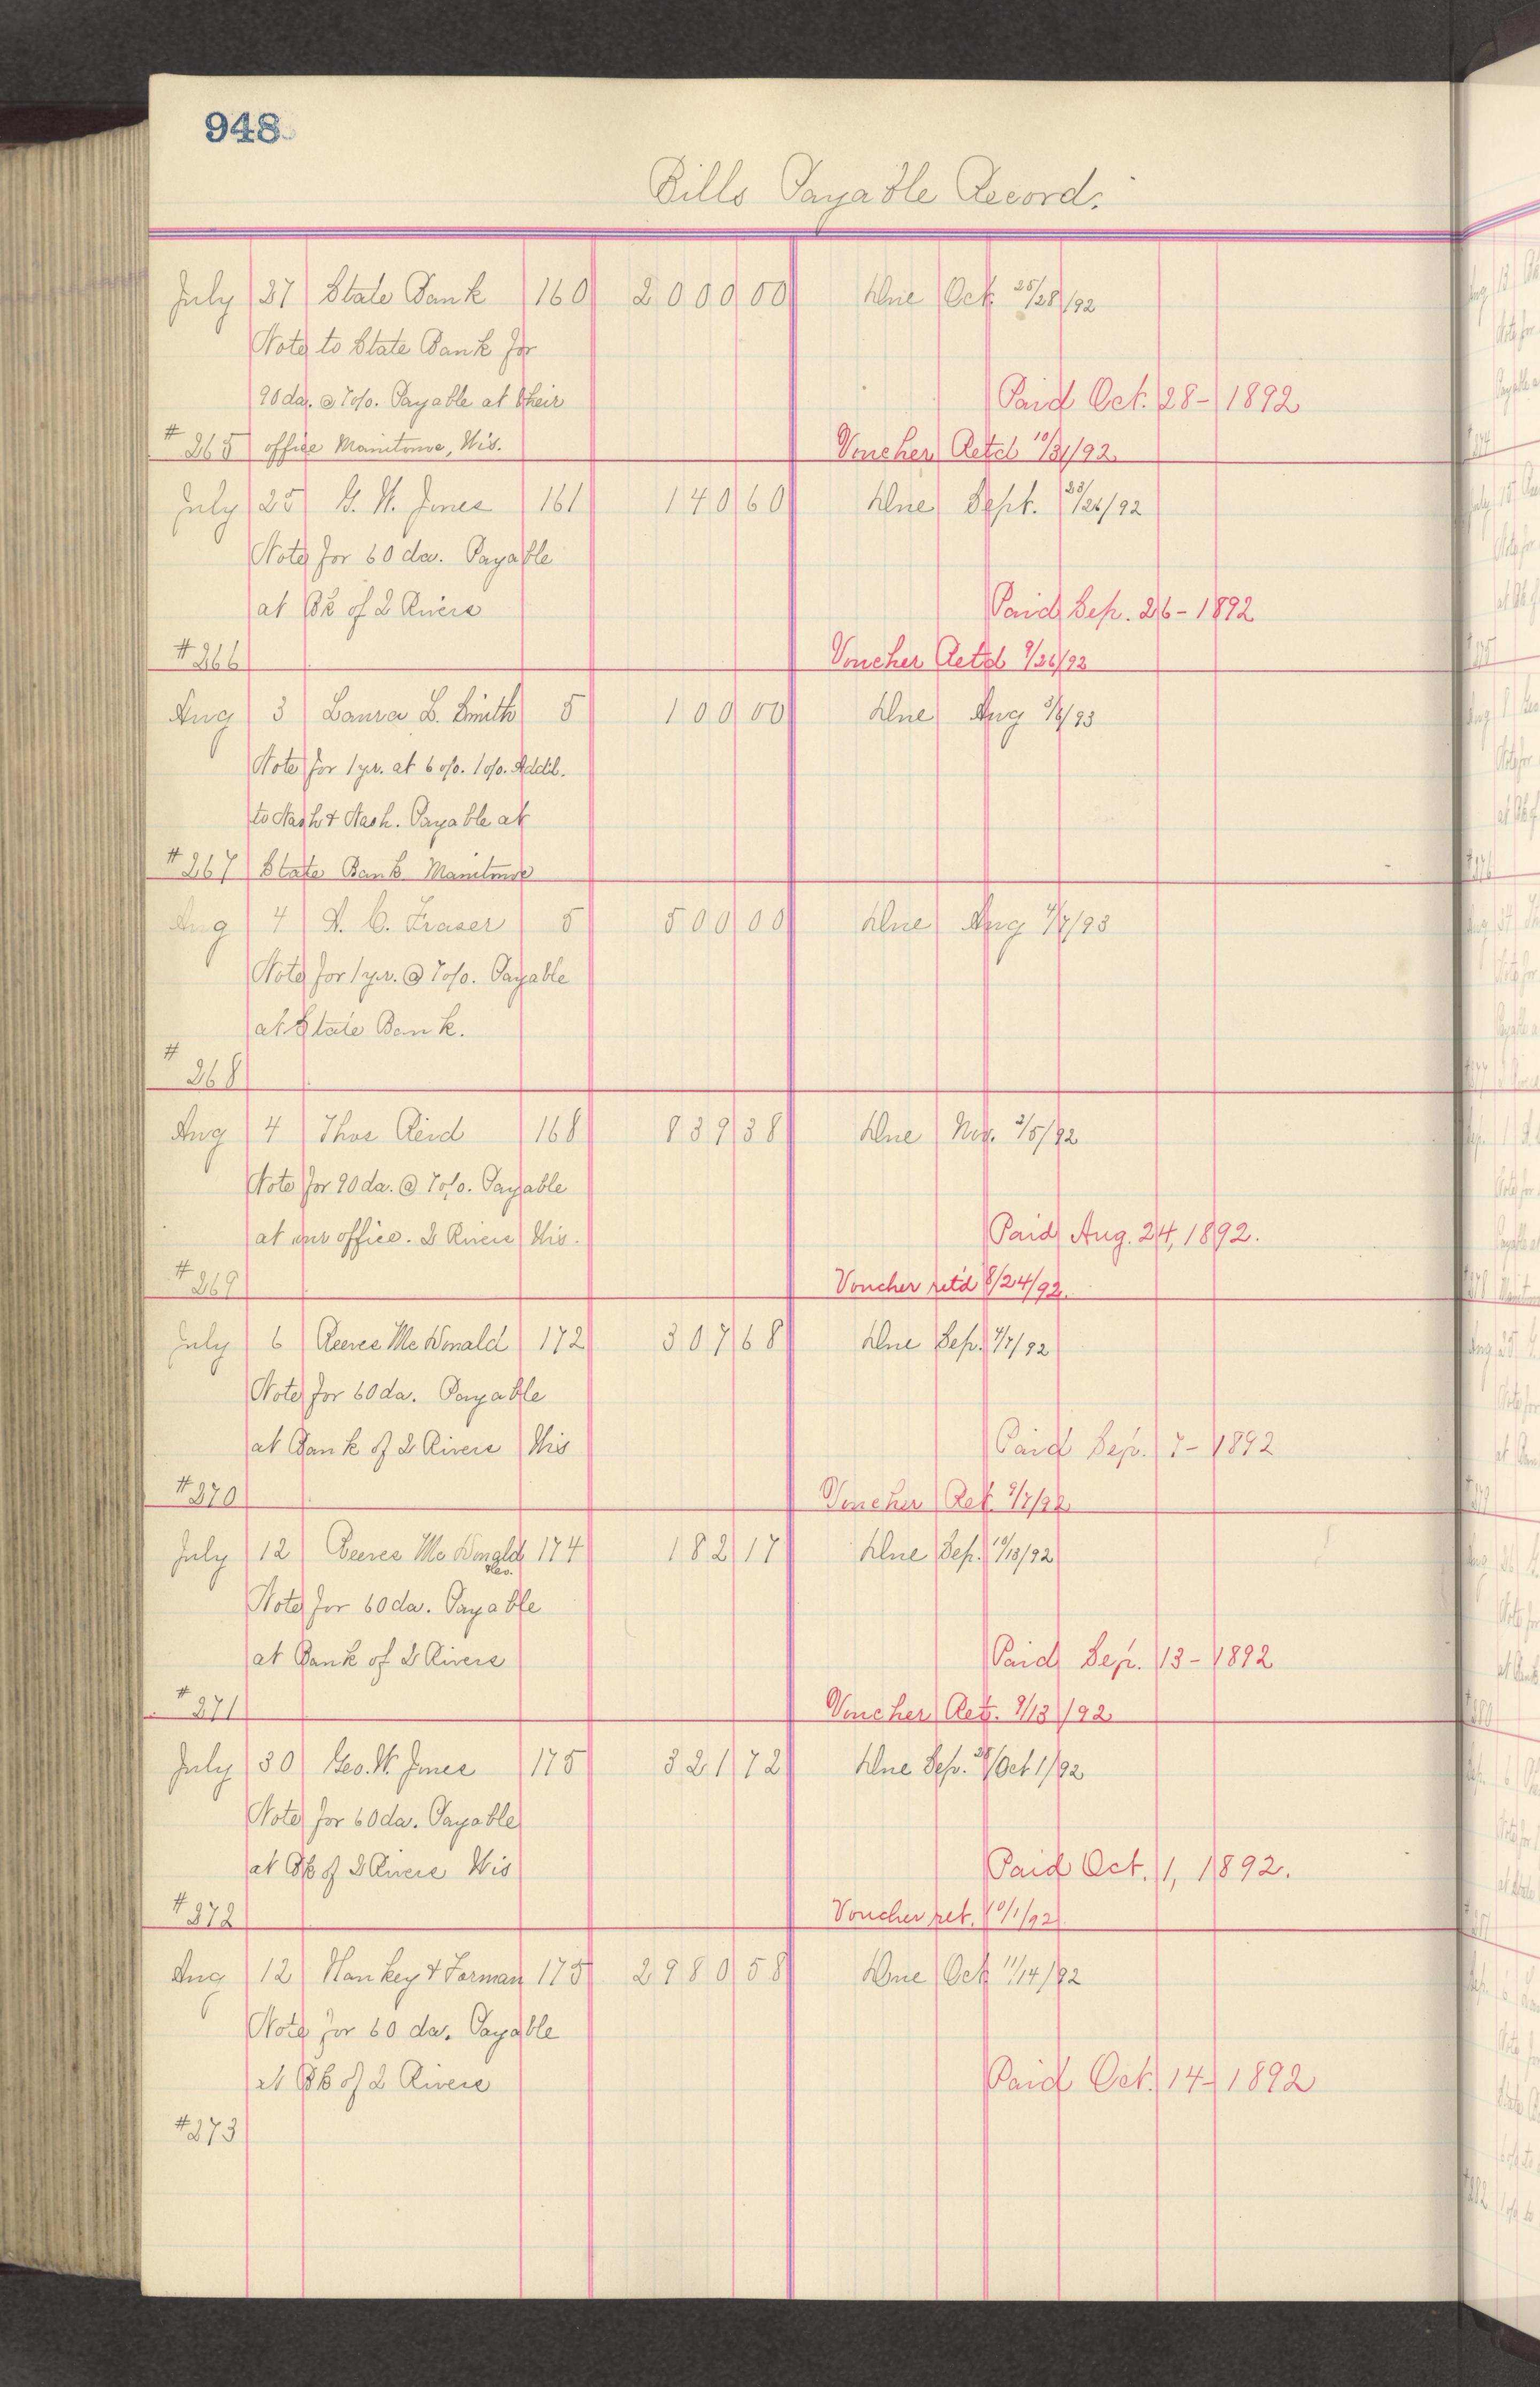 948
Bills Payable Record.
July 27 State Bank 160 2000 00 Due Oct 25/28/92
Note to State Bank for
90 da. @ 7 o/o. Payable at their Paid Oct. 28 - 1892
# 265 office Manitowoc, Wis. Voucher Retd 10/31/92
July 25 G. W. Jones 161 140 60 Due Sept. 23/26/92
Note for 60 da. Payable
at Bk of 2 Rivers Paid Sep. 26 - 1892
# 266 Voucher Retd 9/26/92
Aug 3 Laura L. Smith 5 100 00 Due Aug 3/6/93
Note for 1 yr. at 6 o/o. 1 o/o. Addil.
to Nash & Nash. Payable at
# 267 State Bank Manitowoc
Aug 4 A. C. Fraser 5 500 00 Due Aug 4/7/93
Note for 1 yr. @ 7 o/o. Payable
at State Bank.
# 268
Aug 4 Thos Reid 168 839 38 Due Nov. 2/5/92
Note for 90 da. @ 7 o/o. Payable
at our office. 2 Rivers Wis. Paid Aug. 24, 1892.
# 269 Voucher ret'd 8/24/92.
July 6 Reeves McDonald 172 307 68 Due Sep. 4/7/92
Note for 60 da. Payable
at Bank of 2 Rivers Wis Paid Sep. 7 - 1892
# 270 Voucher Ret. 9/7/92
July 12 Reeves McDonald 174 182 17 Due Sep. 10/13/92
Note for 60 da. Payable
at Bank of 2 Rivers Paid Sep. 13 - 1892
# 271 Voucher Ret. 9/13/92
July 30 Geo. W. Jones 175 321 72 Due Sep. 28/Oct 1/92
Note for 60 da. Payable
at Bk of 2 Rivers Wis Paid Oct. 1, 1892.
# 272 Voucher ret. 10/1/92
Aug 12 Hankey & Forman 175 2980 58 Due Oct 11/14/92
Note for 60 da. Payable
at Bk of 2 Rivers Paid Oct. 14 - 1892
# 273